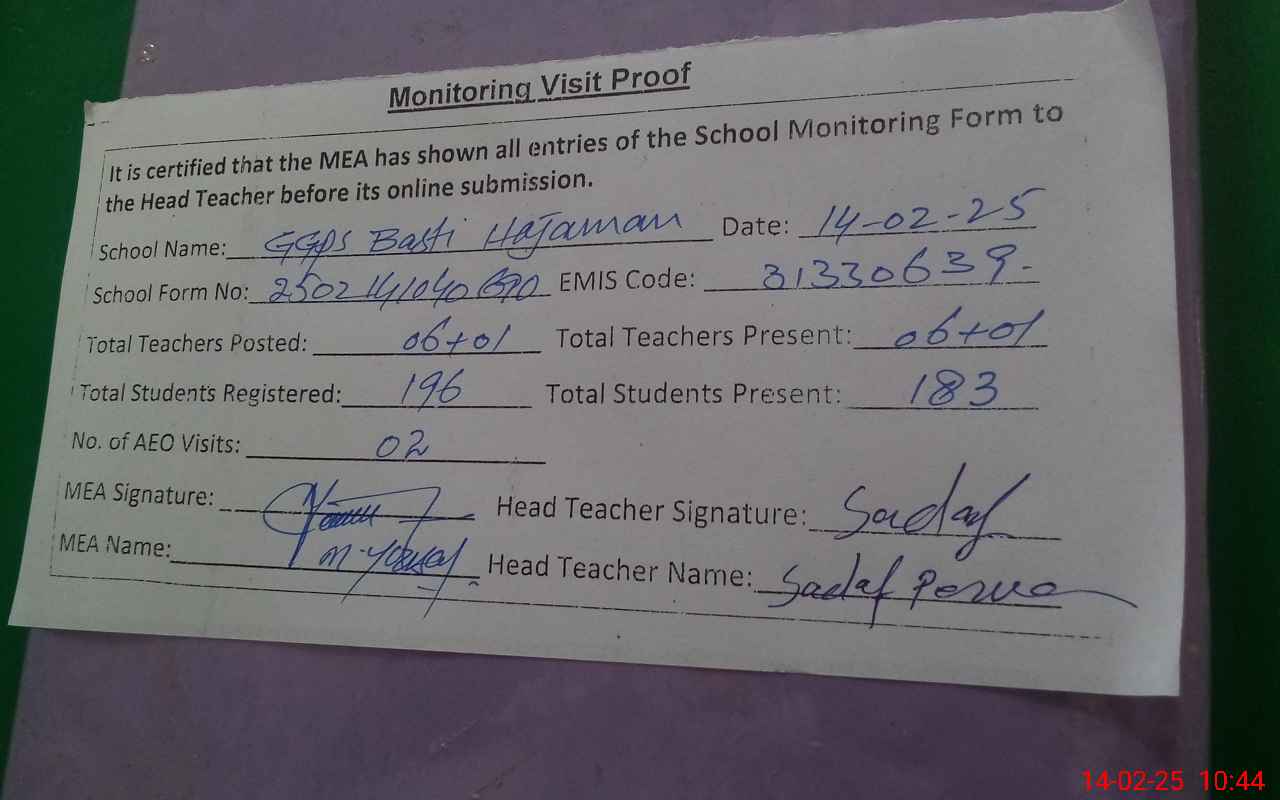 Monitoring Visit Proof
It is certified that the MEA has shown all entries of the School Monitoring Form to
the Head Teacher before its online submission.
School Name: GGPS Basti Hajaman Date: 14-02-25
School Form No: EMIS Code: 31330639-
Total Teachers Posted: 06+01 Total Teachers Present: 06+01
Total Students Registered: 196 Total Students Present: 183
No. of AEO Visits: 02
MEA Signature: Head Teacher Signature: Sadaf
MEA Name: M. Head Teacher Name: Sadaf
14-02-25 10:44